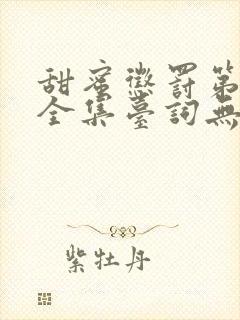 甜蜜懲罰第
全集臺詞無
紫牡丹